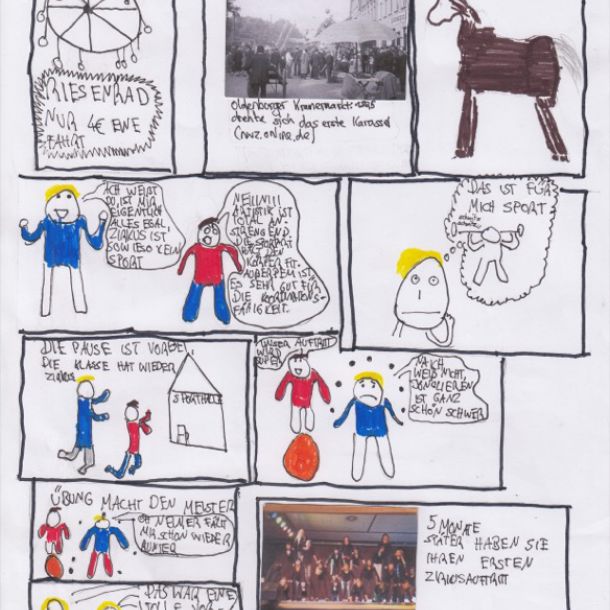 RIESENRAD
NUR 4€ EINE
FAHRT
Oldenburger Kramermarkt:
drehte sich das erste Karussel
ACH WEIßT
DU, IST MIR
EIGENTLICH
ALLES EGAL,
ZIRKUS IST
SOWIESO KEIN
SPORT
NEIN!!!
ARTISTIK IST
TOTAL AN-
STRENGEND.
KÖRPER FIT.
AUßERDEM IST
ES SEHR GUT FÜR
DIE KOORDINATIONS-
FÄHIGKEIT.
DAS IST FÜR
MICH SPORT
DIE PAUSE IST VORBEI,
DIE KLASSE HAT WIEDER
ZIRKUS
SPORTHALLE
UNSER AUFTRITT
WIRD
SUPER
NA ICH
WEIß NICHT,
JONGLIEREN
IST GANZ
SCHÖN SCHWER
ÜBUNG MACHT DEN MEISTER
OH NEIN, ER FÄLLT
MIR SCHON WIEDER
RUNTER
5 MONATE
SPÄTER HABEN SIE
IHREN ERSTEN
ZIRKUSAUFTRITT
DAS WAR EINE
TOLLE